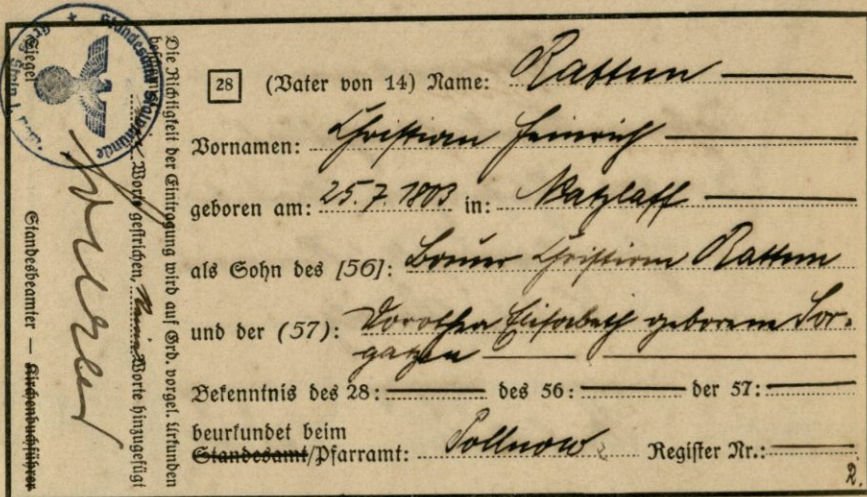 28 (Vater von 14) Name: Rattun
Vornamen: Christian Heinrich
geboren am: 25.7.1803 in: Natzlaff
als Sohn des [56]: Bauer Christian Rattun
und der (57): Dorothea Elisabeth geborene Sor-
gatzen
Bekenntnis des 28: des 56: der 57:
beurkundet beim
Standesamt/Pfarramt: Pollnow Register Nr.:
R.
Die Richtigkeit der Eintragung wird auf Grd. vorgel. Urkunden
Worte gestrichen, Keine Worte hinzugefügt
Siegel
Standesbeamter — Kirchenbuchführer
Standesamt Stolpmünde